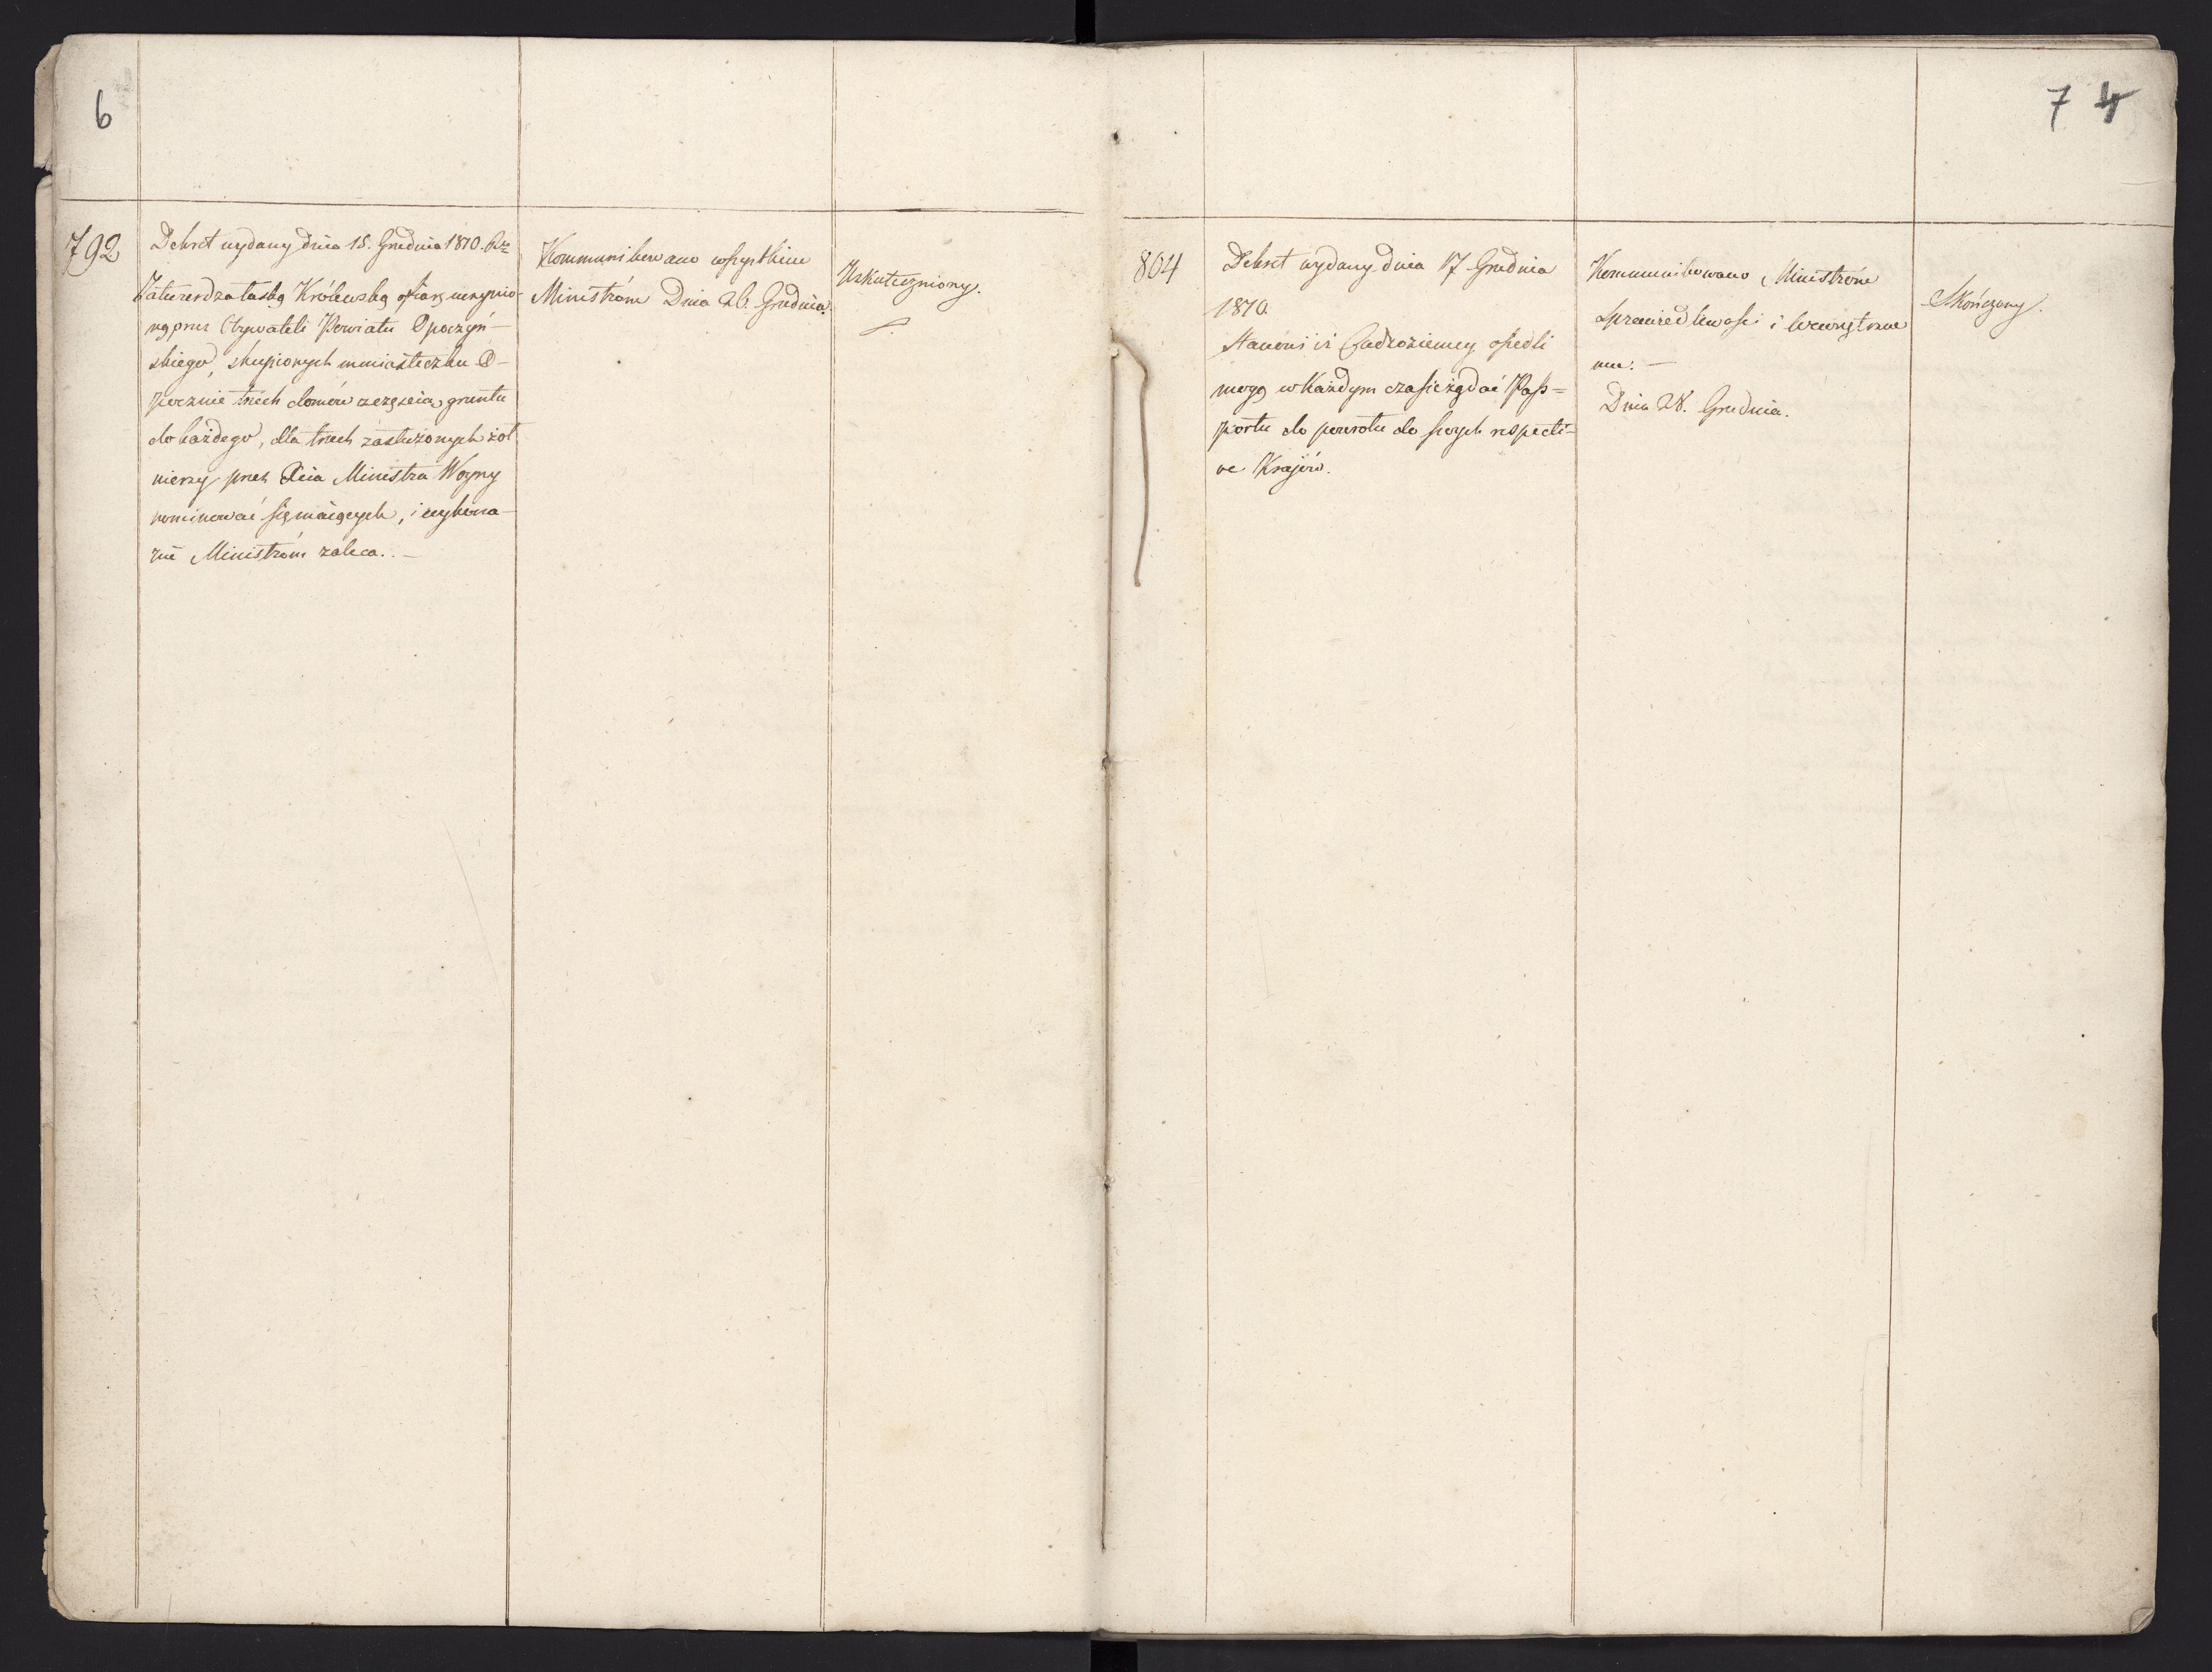 6
792
Dekret wydany dnia 15. Grudnia 1810. Ru
Zatwierdza łaską Królewską ofiarę uczynio-
ną przez Obywateli Powiatu Opoczyń-
skiego, skupionych w miasteczku O-
pocznie trzech domów z częścią gruntu
do każdego, dla trzech zasłużonych żoł
nierzy przez Xcia Ministra Woyny
nominować się maiących, i wykona-
nie Ministróm zaleca. -
Kommunikowano wszystkim
Ministróm Dnia 26. Grudnia.
Uskuteczniony.
7 4
804
Dekret wydany dnia 17 Grudnia
1810.
Stanowi iż Cudzoziemcy osiedli
mogą w Każdym czasie żądać Pasz=
portu do powrotu do swych respecti-
ve Kraiów.
Kommunikowano Ministróm
Sprawiedliwości i Wewnętrzne
mu. -
Dnia 28. Grudnia.
Skończony.